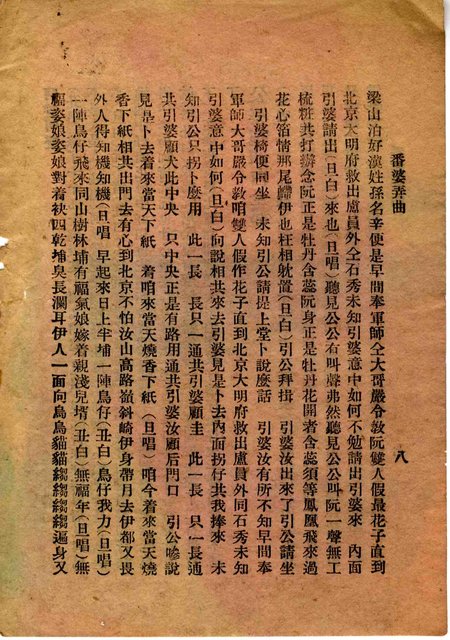 番婆弄曲　八
梁山泊好漢姓孫名辛便是早間奉軍師仝大哥嚴令教阮雙人假最花子直到
北京大明府救出盧員外仝石秀未知引婆意中如何不勉請出引婆來　內面
引婆請出(旦白)來也(旦唱)聽見公公有叫聲弗然聽見公公叫阮一聲無工
梳粧共打辦念阮正是牡丹含蕊阮身正是牡丹花開者含蕊須等鳳凰飛來過
花心笛情那尾歸伊也枉相躭置(旦白)引公拜揖　引婆汝出來了引公請坐
引婆椅便仝坐　未知引公請提上堂卜說麽話　引婆汝有所不知早間奉
軍師大哥嚴令教咱雙人假作花子直到北京大明府救出盧員外同石秀未知
引婆意中如何(旦白)向說相共來去引婆見是卜去內面拐仔共我捧來　未
知引公只拐卜麽用　此一長　長只一通共引婆顧圭　此一長　只一長通
共引婆顧犬此中央　只中央正是有路用通共引婆汝顧后門口　引公嘇說
見是卜去着來當天下紙　着咱來當天燒香下紙(旦唱)咱今着來當天燒
香下紙相共出門去有心到北京不怕汝山高路嶺斜崎伊身帶月去伊都又畏
外人得知機知機(旦唱)早起來日上半埔一陣鳥仔(丑白)鳥仔我力(旦唱)
一陣鳥仔飛來同山樹林埔有福氣娘嫁着親淺兒壻(丑白)無福年(旦唱)無
福姿娘姿娘對着袂四乾埔臭長瀾耳伊人一面向鳥鳥貓貓縐縐縐縐縐遍身又